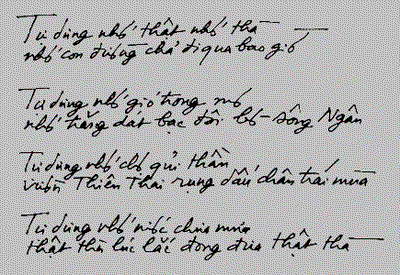 Tự dưng nhớ thật nhớ thà
nhớ con đường chả đi qua bao giờ
Tự dưng nhớ gió trong mơ
nhớ trăng dát bạc đôi bờ sông Ngân
Tự dưng nhớ quỉ thần
vườn Thiên Thai rụng dấu chân trái mùa
Tự dưng nhớ chưa mưa
thật thì lúc lắc đong đưa thật thà